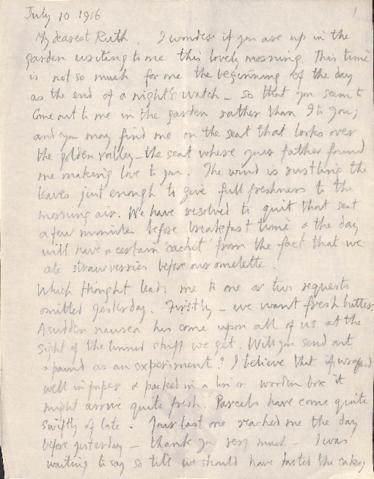 July 10 1916
1
My dearest Ruth I wonder if you are up in the
garden writing to me this lovely morning. This time
is not so much for me the beginning of the day
as the end of a night's watch – so that you seem to
come out to me in the garden rather than I to you;
and you may find me on the seat that looks over
the golden valley – the seat where your father found
me making love to you. The wind is rustling the
leaves just enough to give full freshness to the
morning air. We have resolved to quit that seat
a few minutes before breakfast time & the day
will have a certain cachet from the fact that we
ate strawberries before our omelette.
Which thought leads me to one or two requests
omitted yesterday. Firstly – we want fresh butter.
A sudden nausea has come upon all of us at the
sight of the tinned stuff we get. Will you send out
a pound as an experiment? I believe that if wrapped
well in paper & packed in a tin or wooden box it
might arrive quite fresh. Parcels have come quite
swiftly of late. Your last one reached me the day
before yesterday – thank you very much – I was
waiting to say so till we should have tasted the cakes,